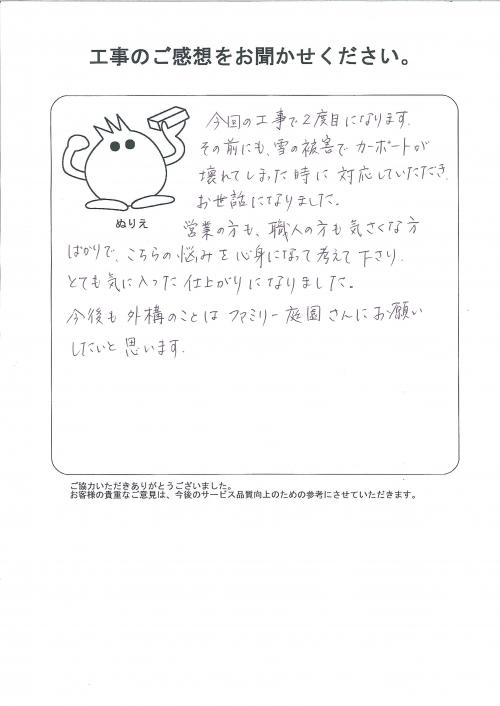 工事のご感想をお聞かせください。
今回の工事で2度目になります。
その前にも、雪の被害でカーポートが
壊れてしまった時に対応していただき、
お世話になりました。
ぬりえ
営業の方も、職人の方も気さくな方
ばかりで、こちらの悩みを心身になって考えて下さり、
とても気に入った仕上がりになりました。
今後も外構のことはファミリー庭園さんにお願い
したいと思います。
ご協力いただきありがとうございました。
お客様の貴重なご意見は、今後のサービス品質向上のための参考にさせていただきます。